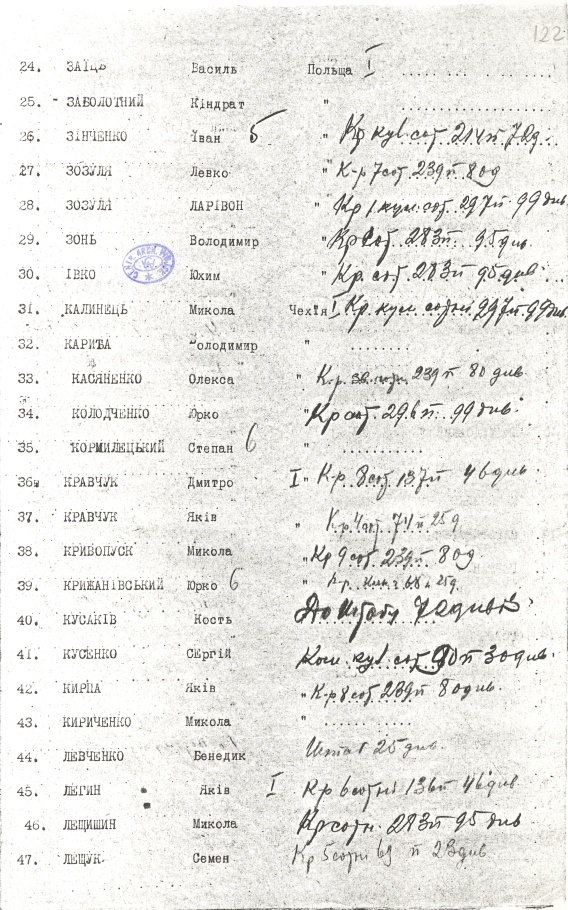 122
24. ЗАЇЦЬ Василь Польща I ..................
25. ЗАБОЛОТНИЙ Кіндрат " ..................
26. ЗІНЧЕНКО Іван б " Кр кул. сот. 214 п 72д.
27. ЗОЗУЛЯ Левко " К-р 7 сот. 239 п 80д
28. ЗОЗУЛЯ ЛАРІВОН " Кр. кул. сот. 297 п. 99 див.
29. ЗОНЬ Володимир " Кр сот. 283 п 95 див
30. ІВКО Юхим " Кр. сот. 283 п 95 див.
31. КАЛИНЕЦЬ Микола Чехія I Кр. кул. сотні 297 п 99 див.
32. КАРИТА Володимир " ........
33. КАСЯНЕНКО Олекса " К.р. 239 п 80 див.
34. КОЛОДЧЕНКО Юрко " Кр сот. 296 п. 99 див.
35. КОРМИЛЕЦЬКИЙ Степан б " ...........
36. КРАВЧУК Дмитро I " Кр. 8 сот. 137 п 46 див.
37. КРАВЧУК Яків " К.р 4 сот. 74 п 25д
38. КРИВОПУСК Микола " Кр 9 сот. 239 п 80д
39. КРИЖАНІВСЬКИЙ Юрко б " К-р. 68 п 25д.
40. КУСАКІВ Кость До Штабу 72 дивів
41. КУСЕНКО СЕргій кул. сот 90 п 30 див.
42. КИРПА Яків " К-р 8 сот. 239 п 80 див.
43. КИРИЧЕНКО Микола " ............
44. ЛЕВЧЕНКО Бенедик Штаб 25 див.
45. ЛЕГИН Яків I Кр 6 сотні 136 п 46 див
46. ЛЕЩИШИН Микола Кр сотн. 283 п 95 див
47. ЛЕЩУК Семен Кр 5 сотні 69 п 23 див